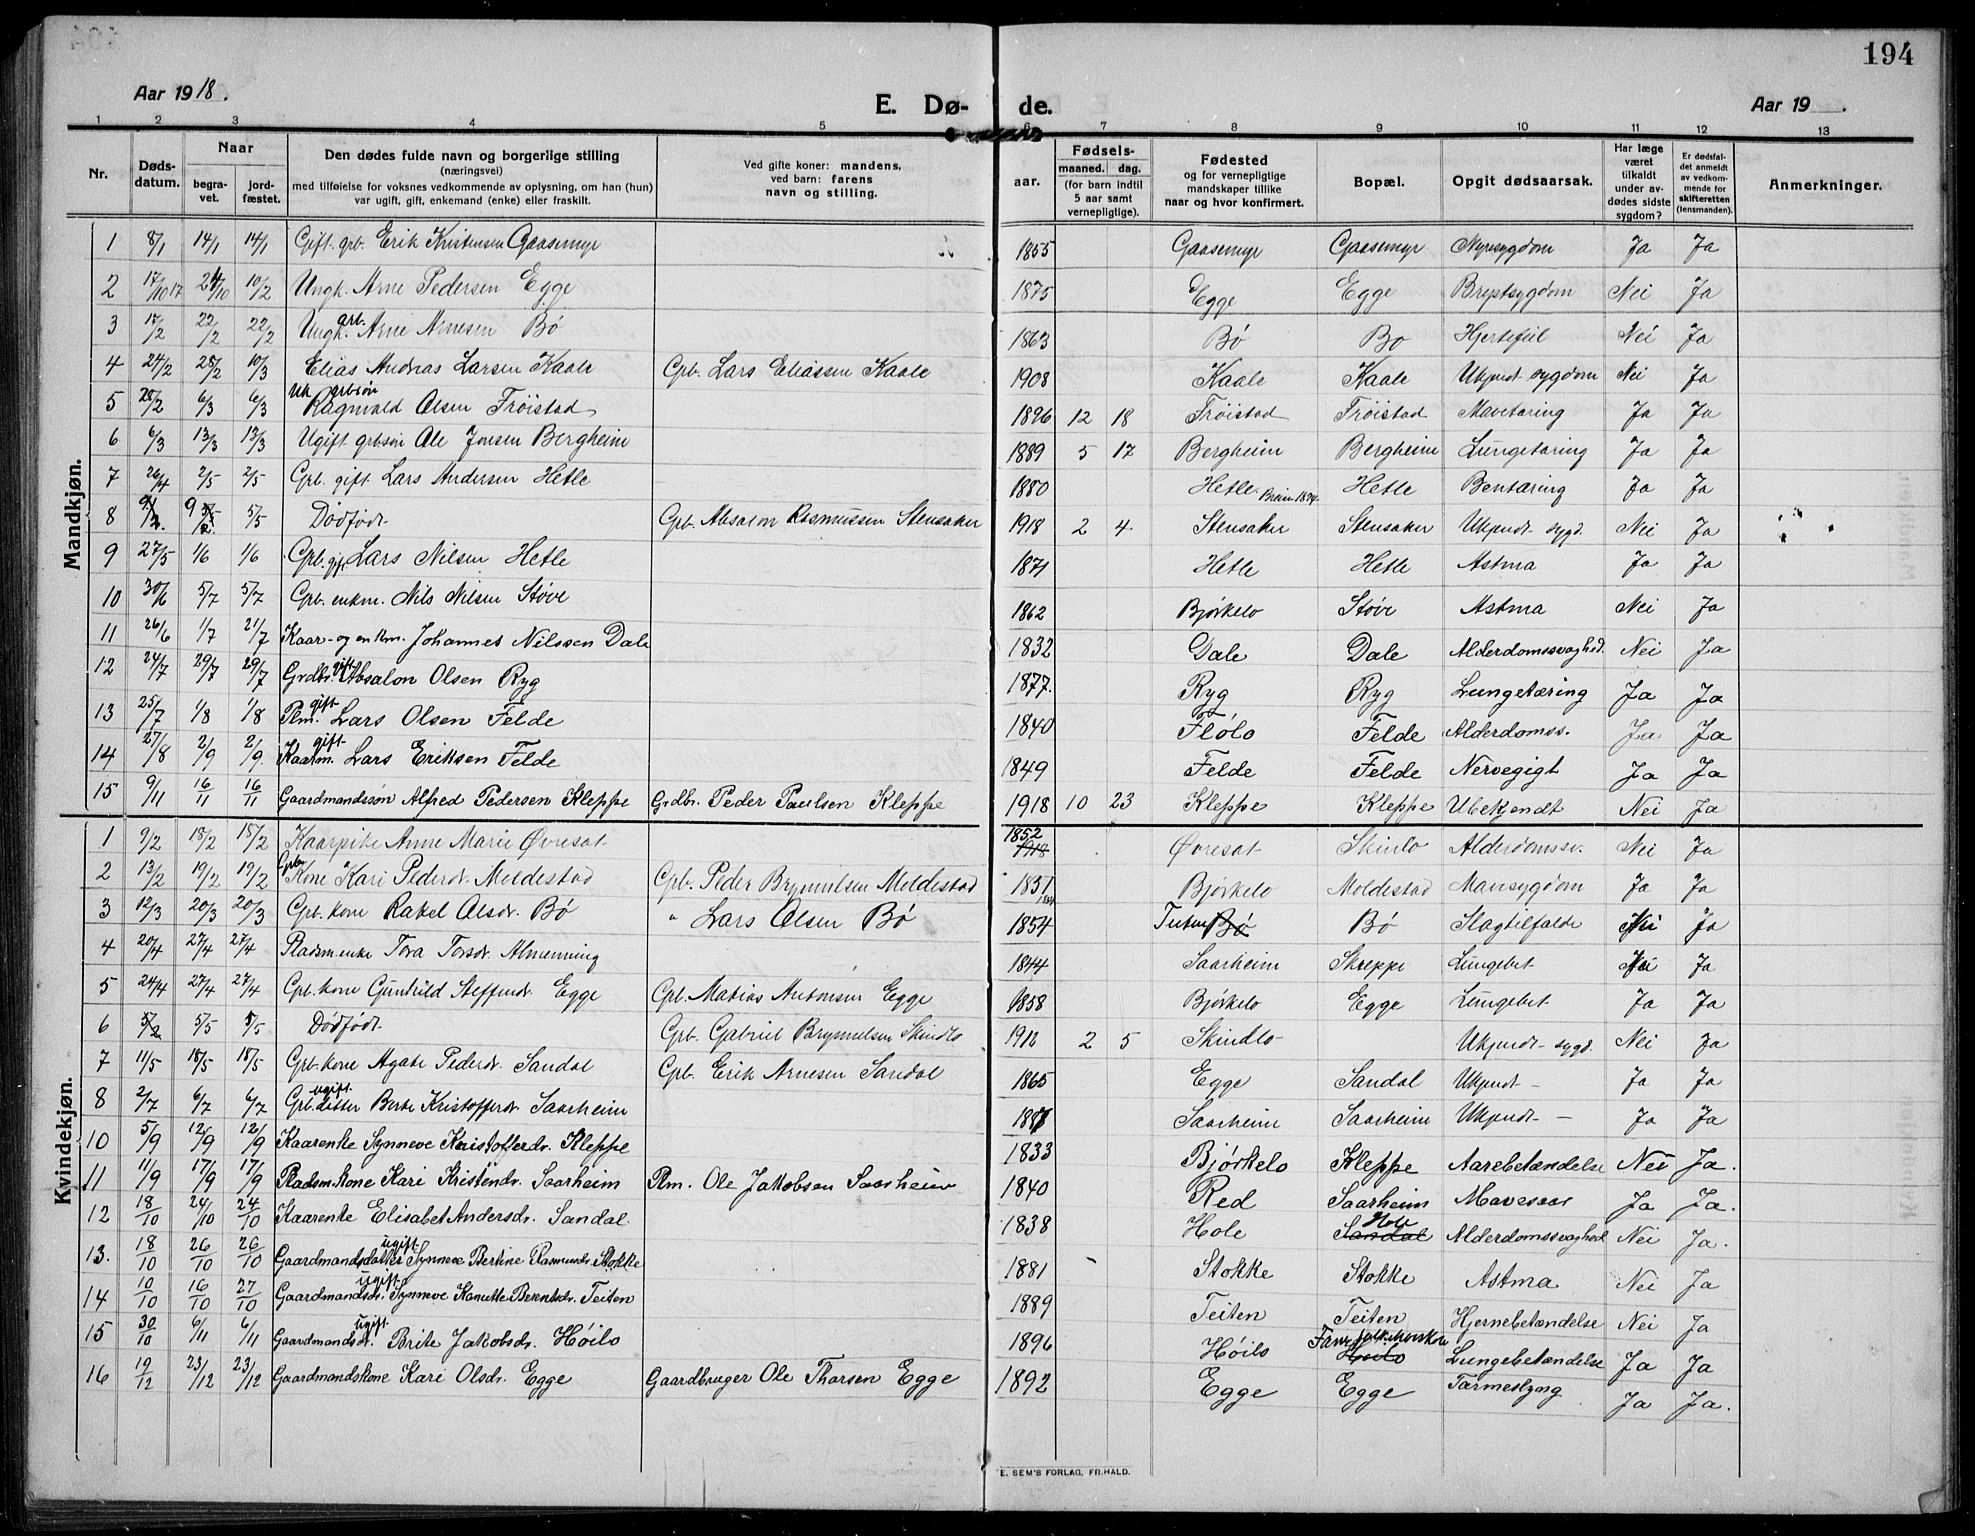 194
Aar 1918.
E. Dø- de.
Aar 19 .
1 2 3 4 5 6 7 8 9 10 11 12 13
Nr. Døds-datum. Naar begra-vet. jord-fæstet. Den dødes fulde navn og borgerlige stilling (næringsvei) med tilføielse for voksnes vedkommende av oplysning, om han (hun) var ugift, gift, enkemand (enke) eller fraskilt. Ved gifte koner: mandens, ved barn: farens navn og stilling. aar. Fødsels- maaned. dag. (for barn indtil 5 aar samt vernepligtige). Fødested og for vernepligtige mandskaper tillike naar og hvor konfirmert. Bopæl. Opgit dødsaarsak. Har læge været tilkaldt under av-dødes sidste sygdom? Er dødsfal-det anmeldt av vedkom-mende for skifteretten (lensmanden). Anmerkninger.
Mandkjøn.
1 8/1 14/1 14/1 Gift. grb. Erik Kristensen Gaasemyr 1855 Gaasemyr Gaasemyr Nyresygdom Ja Ja
2 17/10 17 24/10 10/2 Ungk. Arne Pedersen Egge 1875 Egge Egge Brystsygdom Nei Ja
3 17/2 22/2 22/2 Ungk. grb. Arne Bø 1863 Bø Bø Hjertefeil Nei Ja
4 24/2 28/2 10/3 Elias Andreas Larsen Kaale Grb. Lars Eliassen Kaale 1908 Kaale Kaale Ukjendt sygdom Nei Ja
5 28/2 6/3 6/3 Uk grbsøn Ragnvald Olsen Trøistad 1896 12 18 Trøistad Trøistad Mavetæring Ja Ja
6 6/3 13/3 13/3 Ugift grbsøn Ole Jonsen Bergheim 1889 5 17 Bergheim Bergheim Lungetæring Ja Ja
7 26/4 2/5 2/5 Grb. gift Lars Andersen Hetle 1880 Hetle Hetle Bentæring Ja Ja
8 5/5 Dødfødt Grb. Absalon Rasmussen Stensaker 1918 2 4 Stensaker Stensaker Ukjendt sygd. Nei Ja
9 27/5 1/6 1/6 Grb. gift Lars Nilsen Hetle 1871 Hetle Hetle Astma Ja Ja
10 30/6 5/7 5/7 Grb. enkm. Nils Nilsen Støve 1862 Bjørkelo Støve Astma Nei Ja
11 26/6 1/7 21/7 Kaar- og enkm. Johannes Nilssen Dale 1832 Dale Dale Alderdomssvaghed. Nei Ja
12 24/7 29/7 29/7 Grdbr. gift Absalon Olsen Ryg 1877. Ryg Ryg Lungetæring Ja Ja
13 25/7 1/8 1/8 Plm. gift Lars Olsen Felde 1840 Flölo Felde Alderdomss. Ja Ja
14 27/8 2/9 2/9. Kaarm. gift Lars Eriksen Felde 1849 Felde Felde Nervegigt Ja Ja
15 9/11 16/11 16/11 Gaardmandssøn Alfred Pedersen Kleppe Grdbr. Peder Paulsen Kleppe 1918 10 23 Kleppe Kleppe Ubekjendt Nei Ja
Kvindekjøn.
1 9/2 18/2 18/2 Kaarpike Anne Marie Øvreset 1852 1918 Øvreset Skinlo Alderdomssv. Nei Ja
2 13/2 19/2 19/2 Grb. Kone Kari Pedersdr. Moldestad Grb. Peder Brynnelsen Moldestad 1851 Bjørkelo Moldestad Mavesygdom Ja Ja
3 12/3 20/3 20/3 Grb. kone Rakel Olsdr. Bø " Lars Olsen Bø 1854 Bø Bø Slagtilfælde Nei Ja
4 20/4 27/4 27/4 Pladsm.enke Tora Torsdr. Almenning 1844 Saarheim Skreppe Lungebet Nei Ja
5 24/4 27/4 27/4 Grb. kone Gunhild Steffensdr. Egge Grb. Matias Antonsen Egge 1858 Bjørkelo Egge Lungebet Ja Ja
6 5/2 5/5 5/5 Dødfødt Grb. Gabriel Brynnelsen Skindlo 1918 2 5 Skindlo Ukjendt sygd. Nei Ja
7 11/5 18/5 18/5 Grb. kone Agate Pedersdr. Sandal Grb. Erik Arnesen Sandal 1865 Egge Sandal Ukjendt - Ja Ja
8 2/7 6/7 6/7 Grb. datter ugift Berte Kristoffersdr. Saarheim Saarheim Saarheim Ukjendt - Ja Ja
10 5/9 12/9 12/9 Kaarenke Synneve Kristoffersdr. Kleppe 1833 Bjørkelo Kleppe Aarebetændelse Nei Ja.
11 11/9 17/9 17/9 Pladsm.kone Kari Kristensdr. Saarheim Plm. Ole Jakobsen Saarheim 1840 Red Saarheim Mavesaar Ja Ja.
12 18/10 24/10 24/10 Kaarenke Elisabet Andersdr. Sandal. 1838 Hole Sandal Hole Alderdomssvaghed Nei Ja.
13. 18/10 26/10 26/10 Gaardmandsdatter ugift Synneve Bertine Rasmusdr. Stokke 1881 Stokke Stokke Astma Nei Ja
14 10/10 16/10 27/10 Gaardmandsdr. ugift Synneve Kanutte Berentsdr. Teiten 1889 Teiten Teiten Hjernebetændelse Nei Ja
15 30/10 6/11 6/11 Gaardmandsdr. ugift Brite Jakobsdr. Høilo 1896 Høilo Høilo Lungebetændelse Ja Ja
16 19/12 23/12 23/12 Gaardmandskone Kari Olsdr. Egge Gaardbruger Ole Thorsen Egge 1892 Egge Egge Tarmeslyng Ja Ja.
E. SEM'S FORLAG, FR.HALD.